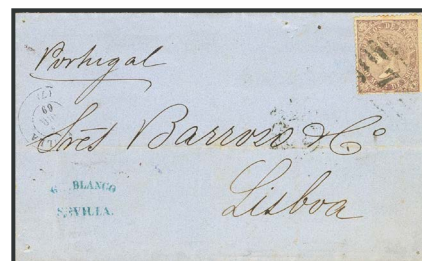 Portugal
Srês Barros & Cº
Lisboa
G. BLANCO
SEVILLA.
69